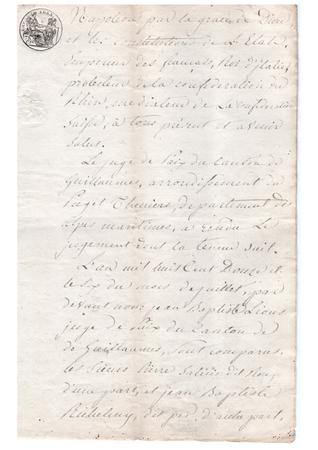 Napoleon par la grace de Dieu
et les constitutions de l'Etat,
Empereur des français, Roi d'italie,
protecteur de la confédération du
Rhin, médiateur de la confédération
suisse, à tous présent et avenir
salut.
Le juge de Paix du Canton de
Guillaumes, arrondissement du
Puget Theniers, département des
alpes maritimes, a rendu le
jugement dont la teneur suit.
L'an mil huit Cent Douze et
le six du mois de juillet, par
devant nous jean Baptiste
juge de Paix du Canton de
de Guillaumes, sont comparus,
les sieurs Pierre dit
d'une part, et jean Baptiste
dit d'autre part,